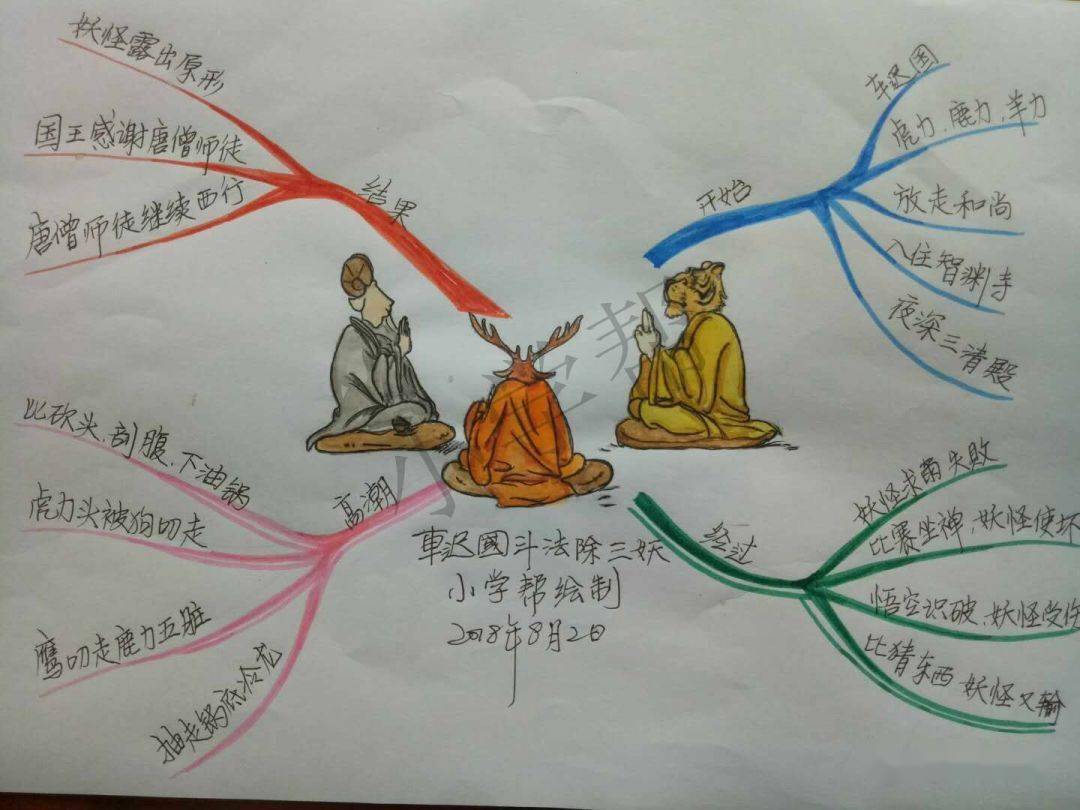 车迟国斗法除三妖
小学帮绘制
2018年8月2日
开始
车迟国
虎力、鹿力、羊力
放走和尚
入住智渊寺
夜深三清殿
经过
妖怪求雨失败
比赛坐禅,妖怪使坏
悟空识破,妖怪受伤
比猜东西 妖怪又输
高潮
比砍头、剖腹、下油锅
虎力头被狗叼走
鹰叼走鹿力五脏
抽走锅底冷龙
结果
妖怪露出原形
国王感谢唐僧师徒
唐僧师徒继续西行
小学帮